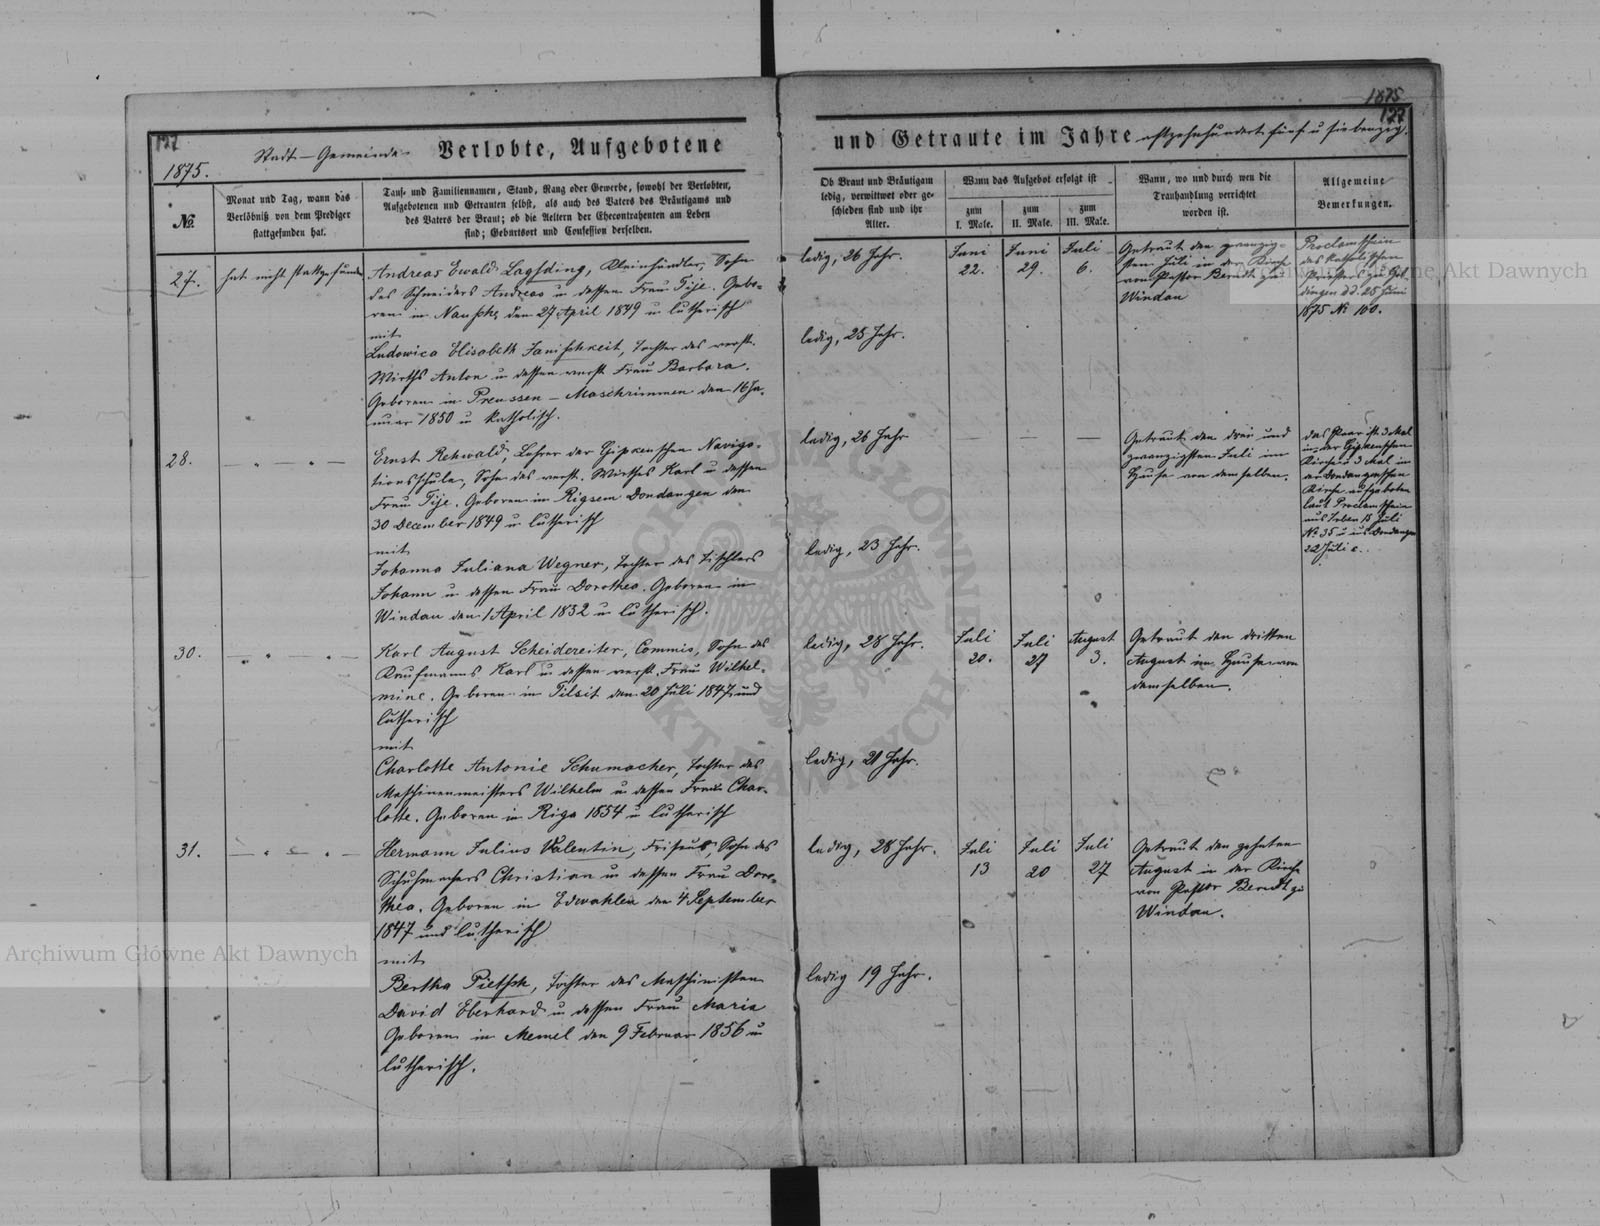 1875
127
127
1875.
Stadt-Gemeinde
Verlobte, Aufgebotene
und Getraute im Jahre achtzehnhundert fünf u siebenzig.
№.
Monat und Tag, wann das
Verlöbniß von dem Prediger
stattgefunden hat.
Tauf- und Familiennamen, Stand, Rang oder Gewerbe, sowohl der Verlobten,
Aufgebotenen und Getrauten selbst, als auch des Vaters des Bräutigams und
des Vaters der Braut; ob die Aeltern der Ehecontrahenten am Leben
sind; Geburtsort und Confession derselben.
Ob Braut und Bräutigam
ledig, verwittwet oder ge-
schieden sind und ihr
Alter.
Wann das Aufgebot erfolgt ist
zum
I. Male.
zum
II. Male.
zum
III. Male.
Wann, wo und durch wen die
Trauhandlung verrichtet
worden ist.
Allgemeine
Bemerkungen.
27.
hat nicht stattgefunden
Andreas Ewald Lagsding, Kleinhändler, Sohn
des Schneiders Andreas u dessen Frau Tije. Gebo-
ren in den 27 April 1849 u lutherisch
mit
Ludowica Elisabeth Janischkeit, Tochter des verst.
Wirths Anton u dessen verst Frau Barbara.
Geboren in Preussen - Maschrimmen den 16 Ja-
nuar 1850 u katholisch.
ledig, 26 Jahr.
ledig, 25 Jahr.
Juni
22.
Juni
29.
Juli
6.
Getraut den zwanzig-
sten Juli in der Kirche
von Pastor Berndt zu
Windau
Proclamschein
des katholischen
Priesters zu
dingen dd. 25 Juni
1875 № 100.
28.
— " — " —
Ernst Rehwald, Lehrer der Gipkenschen Naviga-
tionsschule, Sohn des verst. Wirthes Karl u dessen
Frau Tije. Geboren im Rigsem Dondangen den
30 December 1849 u lutherisch
mit
Johanna Juliana Wegner, Tochter des Tischlers
Johann u dessen Frau Dorothea. Geboren in
Windau den 1 April 1852 u lutherisch.
ledig, 26 Jahr
ledig, 23 Jahr.
— — —
Getraut den drei und
zwanzigsten Juli im
Hause von demselben.
das Paar ist 3 Mal
in der Gipkenschen
Kirche u 3 Mal in
der Dondangenschen
Kirche aufgeboten
laut Proclamschein
aus Irben 15 Juli
№ 35 u aus Dondangen
22 Juli c.
30.
— " — " —
Karl August Scheidereiter, Commis, Sohn des
Kaufmanns Karl u dessen verst. Frau Wilhel-
mine. Geboren in Tilsit den 20 Juli 1847 und
lutherisch
mit
Charlotte Antonie Schumacher, Tochter des
Maschinenmeisters Wilhelm u dessen Frau Char-
lotte. Geboren in Riga 1854 u lutherisch
ledig, 28 Jahr.
ledig, 21 Jahr.
Juli
20.
Juli
27
August
3.
Getraut den dritten
August im Hause von
demselben.
31.
— " — " —
Hermann Julius Valentin, Friseur, Sohn des
Schuhmachers Christian u dessen Frau Doro-
thea. Geboren in Edwahlen den 4 September
1847 und lutherisch
mit
Bertha Pietsch, Tochter des Maschinisten
David Eberhard u dessen Frau Maria
Geboren in Memel den 9 Februar 1856 u
lutherisch.
ledig, 28 Jahr.
ledig 19 Jahr.
Juli
13
Juli
20
Juli
27
Getraut den zehnten
August in der Kirche
von Pastor Berndt zu
Windau.
Archiwum Główne Akt Dawnych
Archiwum Główne Akt Dawnych
ARCHIWUM GŁÓWNE AKT DAWNYCH